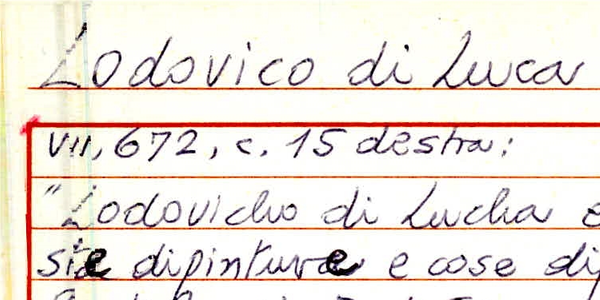 Lodovico di Luca
VII, 672, c. 15 destra:
"Lodovicho di Lucha e
ste dipinture e cose di